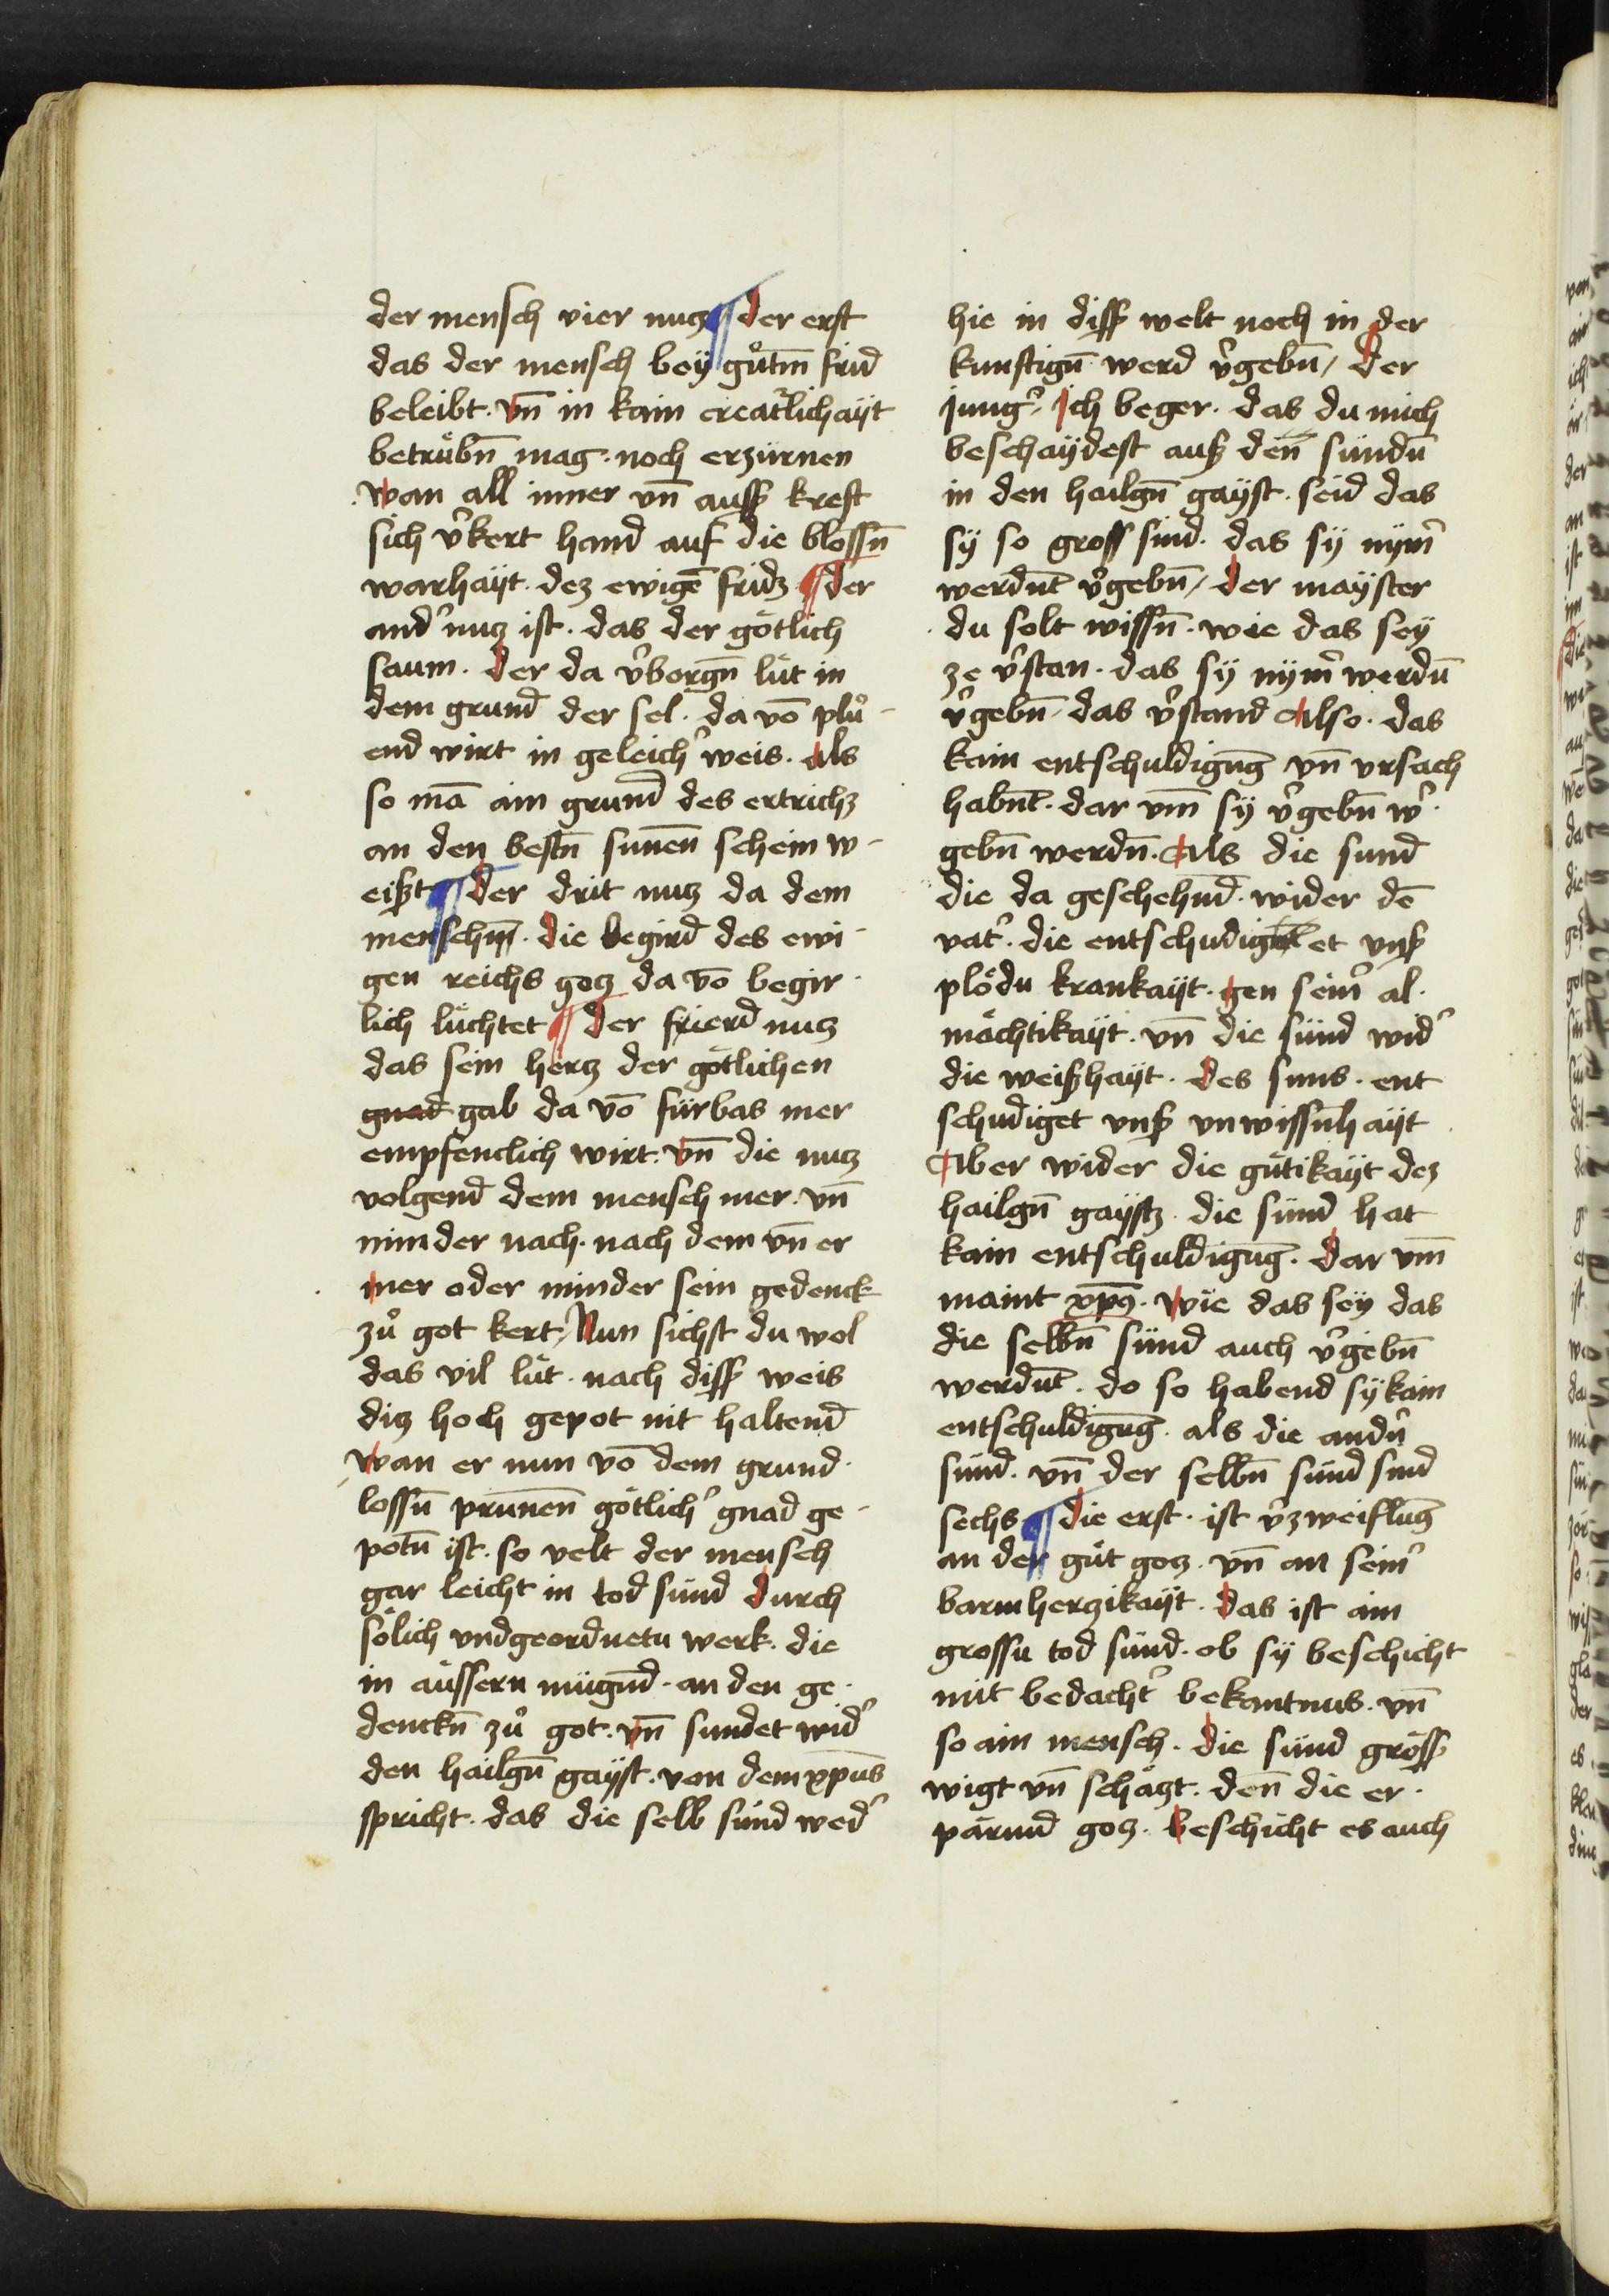 der mensch vier nucz ¶ der erst
das der mensch bey gůtm̄ frid
beleibt. vn̄ in kain creatr̄lichayt
betrübn̄ mag. noch erzürnen
wan all inner vn̄ auss kreft
sich v̉kert hand auf die blossn̄
warhayt. dez ewigē fridz ¶ der
and̉ nucz ist. das der götlich
saum. der da v̉borgn̄ lüt in
dem grund der sel. da vō plů-
end wirt in geleich̉ weis. als
so mā ain grund des ertrichz
an den bestn̄ sunnen̄ schein w-
eißt ¶ der drit nucz da dem
menschn̄. die begird des ewi-
gen reichs gocz da vō begir-
lich lüchtet ¶ der frierd nucz
das sein hercz der götlichen
gnad gab da vō fürbas mer
empfenclich wirt. vn̄ die nucz
volgend dem mensch mer. vn̄
minder nach. nach dem vn̄ er
mer oder minder sein gedenck
zů got kert / Nun sichst du wol
das vil lüt. nach diss weis
dicz hoch gepot nit haltend
wan er nun vō dem grund-
lossn̄ prunen̄ götlich̉ gnad ge-
potn̄ ist. so velt der mensch
gar leicht in tod sünd durch
sölich vndgeordnetu werk. die
in äussern mügnd. an den ge-
denckn̄ zů got. vn̄ sundet wid̉
den hailgn̄ gayst. von dem xp̄us
spricht. das die selb sünd wed̉
hie in diss welt noch in der
kunftign̄ werd v̉gebn̄ / der
jung̉ / ich beger. das du mich
beschaydest auß den̄ sündn̄
in den hailgn̄ gayst. seid das
sy so gross sind. das sy nym̉
werdnt v̉gebn̄ / der mayster
du solt wissn̄. wie das sey
ze v̉stan. das sy nym̉ werdn̄
v̉gebn̄. das v̉stand Also. das
kain entschuldigūg vn̄ vrsach
habnt. dar vm̄ sy v̉gebn̄ w̉
gebn̄ werdn̄. Als die sund
die da geschehnd. wider dē
vat̉. die entschudiget vnß
plödu krankayt. gen seim̉ al-
mächtikayt. vn̄ die sünd wid̉
die weißhayt. des suns. ent
schudiget vnß vnwissn̄hayt
Aber wider die gütikayt dez
hailgn̄ gaystz. die sünd hat
kain entschuldigūg. dar vm̄
maint xp̄s. wie das sey das
die selbn̄ sünd auch v̉gebn̄
werdnt. do so habend sy kain
entschuldigūg. als die andn̉
sünd. vn̄ der selbn̄ sünd sind
sechs ¶ die erst. ist v̉zweiflūg
an der güt gocz. vn̄ an seim̉
barmherczikayt. das ist ain
grossu tod sünd. ob sy beschicht
mit bedacht̉ bekantnus. vn̄
so ain mensch. die sünd gröss
wigt vn̄ schäczt. den̄ die er-
pärmd gocz. beschicht es auch